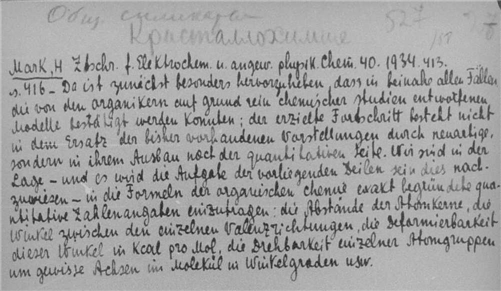 Общ.
Кристаллохимия
527
Mark, H Ztschr. f. Elektrochem. u. angew. physik. Chem. 40. 1934. 413.
s. 416 – Da ist zunächst besonders hervorzuheben, dass in beinahe allen Fällen
die von den organikern auf grund rein chemischer studien entworfenen
Modelle bestätigt werden konnten; der erzielte Fortschritt besteht nicht
in dem Ersatz der bisher vorhandenen Vorstellungen durch neuartige,
sondern in ihrem Ausbau nach der quantitativen Seite. Wir sind in der
Lage – und es wird die Aufgabe der vorliegenden Zeilen sein dies nach-
zuweisen – in die Formeln der organischen chemie exakt begründete qua-
ntitative Zahlenangaben einzutragen: die Abstände der Atomkerne, die
Winkel zwischen den einzelnen Valenzrichtungen, die Deformierbarkeit
dieser Winkel in Kcal pro Mol, die Drehbarkeit einzelner Atomgruppen
um gewisse Achsen im Molekül in Winkelgraden usw.